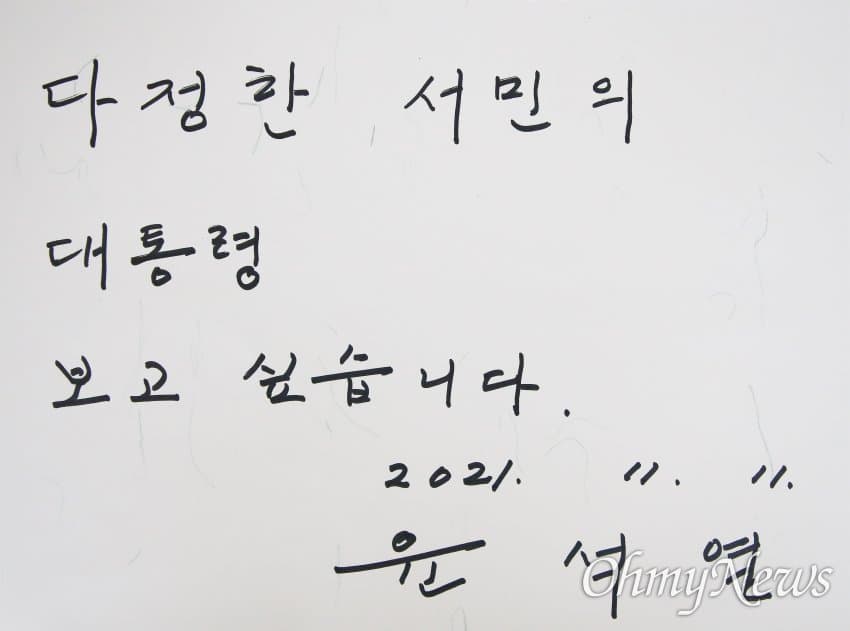 다정한 서민의
대통령
보고 싶습니다.
2021. 11. 11.
윤 석 열
OhmyNews